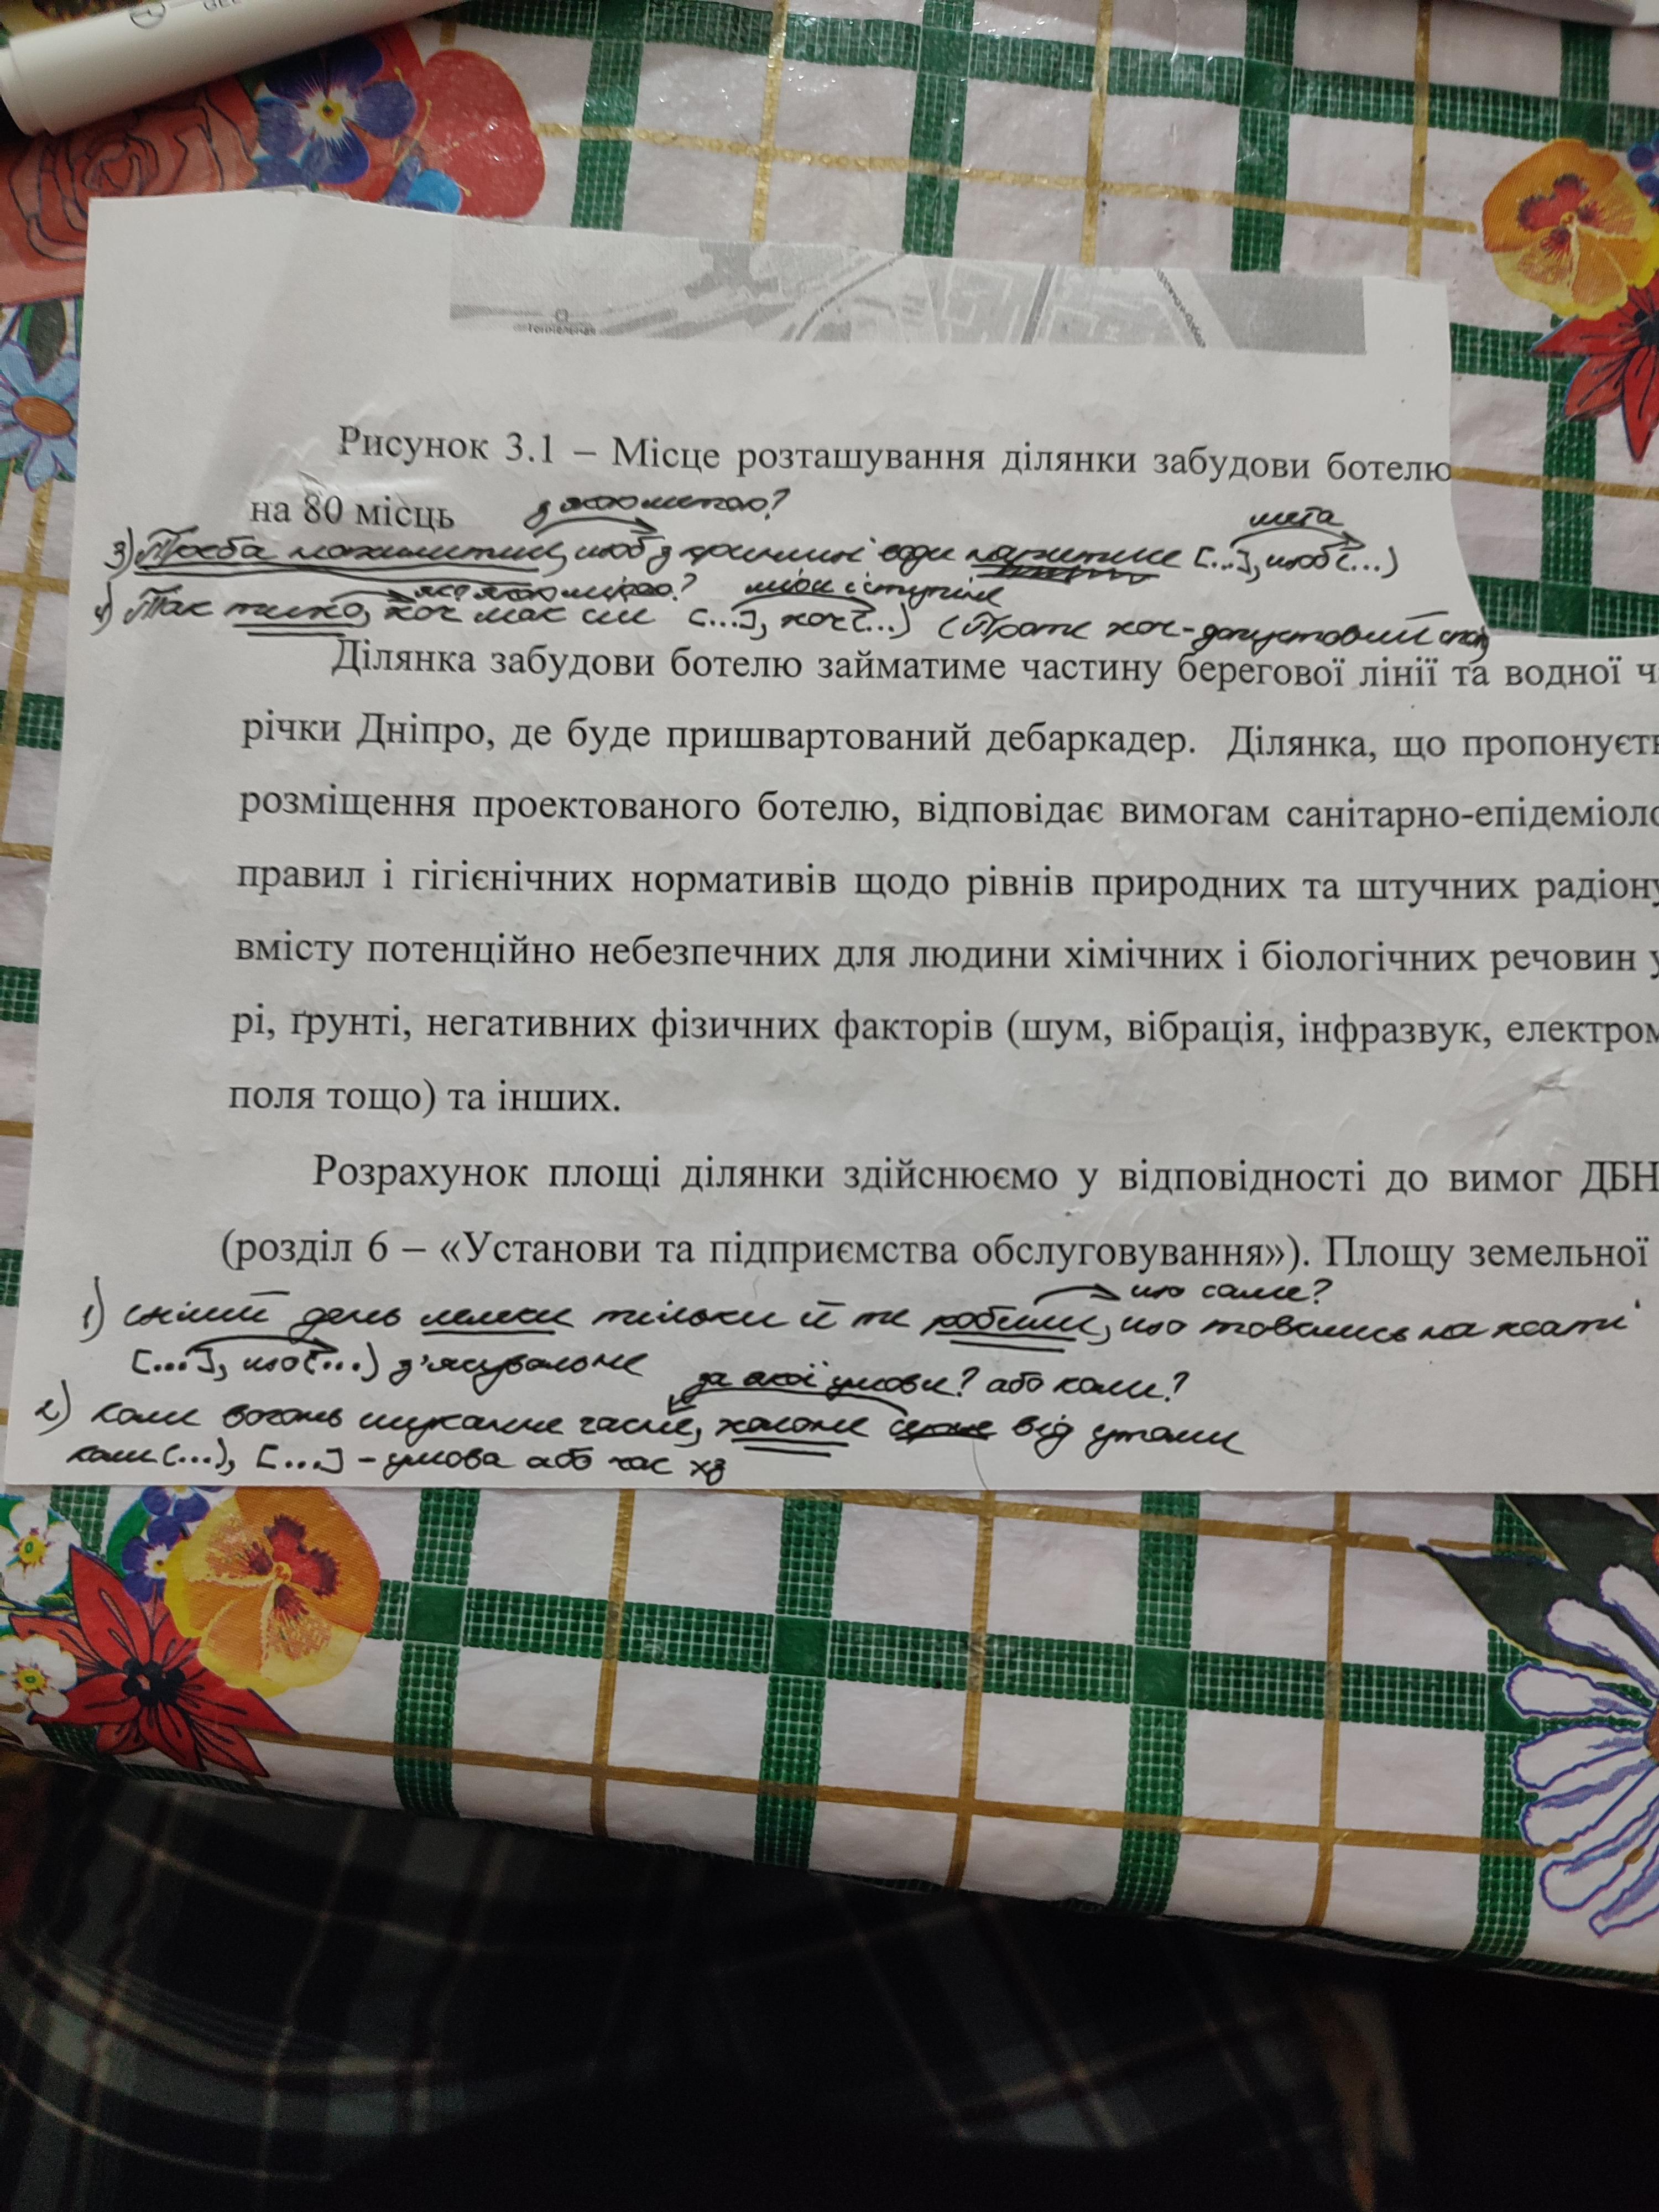 GEL
Тополиная
Рисунок 3.1 – Місце розташування ділянки забудови ботелю
на 80 місць
з якою метою?
мета
3) Треба нахилитик, щоб з криниці води [...], щоб (...)
як? якою мірою? міри і ступіня
4) Так тихо, хоч мак сій [...], хоч (...) (Проте хоч - допустовий спол
Ділянка забудови ботелю займатиме частину берегової лінії та водної ч
річки Дніпро, де буде пришвартований дебаркадер. Ділянка, що пропонуєть
розміщення проектованого ботелю, відповідає вимогам санітарно-епідеміоло
правил і гігієнічних нормативів щодо рівнів природних та штучних радіону
вмісту потенційно небезпечних для людини хімічних і біологічних речовин у
рі, ґрунті, негативних фізичних факторів (шум, вібрація, інфразвук, електром
поля тощо) та інших.
Розрахунок площі ділянки здійснюємо у відповідності до вимог ДБН
(розділ 6 – «Установи та підприємства обслуговування»). Площу земельної
що саме?
1) день лелеки тільки й те робили, що товклись на хаті
[...], що (...) з'ясувальне
за якої умови? або коли?
2) коли вогонь шукання гасне, холоне серце від утоми
коли (...), [...] - умова або час хз